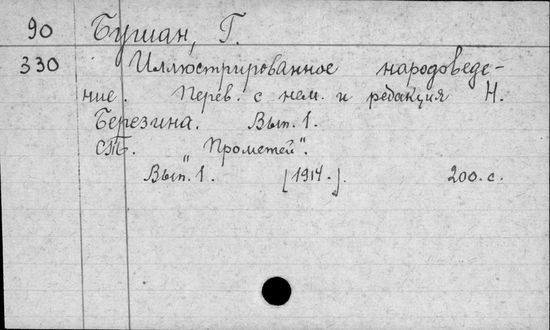 90 Бушан, Г.
330 Иллюстрированное народоведе-
ние. Перев. с нем. и редакция Н.
Березина. Вып. 1.
СПБ. "Прометей".
Вып. 1. [1914.]. 200. с.